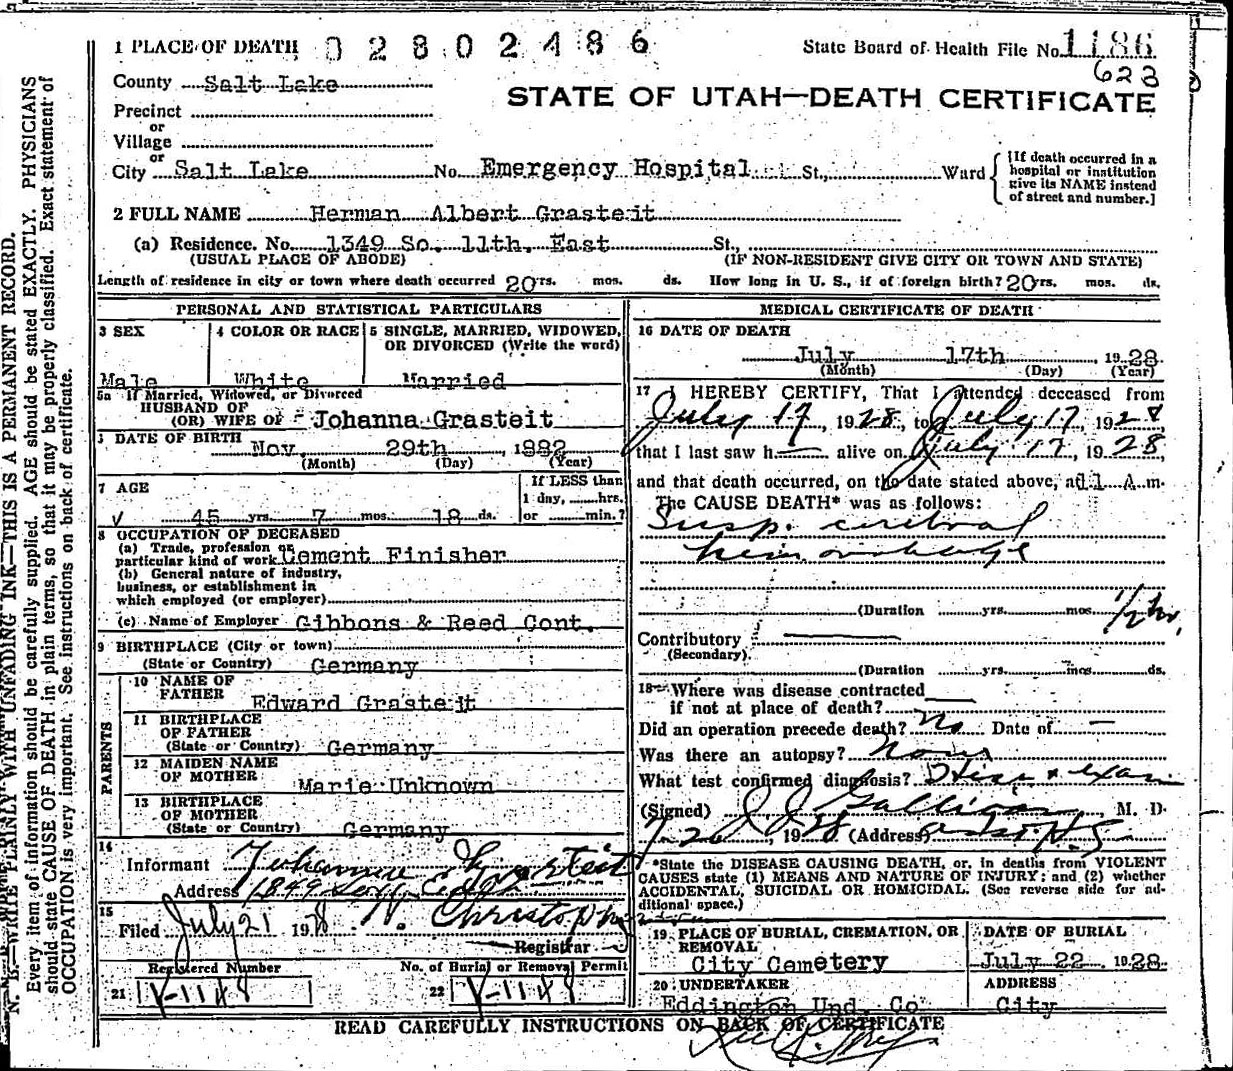 1 PLACE OF DEATH 02802486
State Board of Health File No. 1186
623
County Salt Lake
STATE OF UTAH—DEATH CERTIFICATE
Precinct
or
Village
or
City Salt Lake No. Emergency Hospital St., Ward
[If death occurred in a
hospital or institution
give its NAME instead
of street and number.]
2 FULL NAME Herman Albert Grasteit
(a) Residence. No. 1349 So. 11th. East St.,
(USUAL PLACE OF ABODE) (IF NON-RESIDENT GIVE CITY OR TOWN AND STATE)
Length of residence in city or town where death occurred 20 yrs. mos. ds. How long in U. S., if of foreign birth? 20 yrs. mos. ds.
PERSONAL AND STATISTICAL PARTICULARS
3 SEX
Male
4 COLOR OR RACE
White
5 SINGLE, MARRIED, WIDOWED,
OR DIVORCED (Write the word)
Married
5a If Married, Widowed, or Divorced
HUSBAND OF
(OR) WIFE OF Johanna Grasteit
DATE OF BIRTH
Nov. 29th , 1882
(Month) (Day) (Year)
7 AGE
45 yrs. 7 mos. 18 ds.
If LESS than
1 day, hrs.
or min.?
8 OCCUPATION OF DECEASED
(a) Trade, profession or
particular kind of work Cement Finisher
(b) General nature of industry,
business, or establishment in
which employed (or employer)
(c) Name of Employer Gibbons & Reed Cont.
9 BIRTHPLACE (City or town)
(State or Country) Germany
PARENTS
10 NAME OF
FATHER Edward Grasteit
11 BIRTHPLACE
OF FATHER
(State or Country) Germany
12 MAIDEN NAME
OF MOTHER Marie Unknown
13 BIRTHPLACE
OF MOTHER
(State or Country) Germany
14
Informant Johanna Grasteit
Address 1349 So 11 East
15
Filed July 21 1928
Registrar
Registered Number
21 K-1148
No. of Burial or Removal Permit
22 K-1148
MEDICAL CERTIFICATE OF DEATH
16 DATE OF DEATH
July 17th , 1928
(Month) (Day) (Year)
17 I HEREBY CERTIFY, That I attended deceased from
July 17, 1928, to July 17, 1928,
that I last saw h— alive on July 17, 1928,
and that death occurred, on the date stated above, at 11 A.m.
The CAUSE DEATH* was as follows:
Susp. cerebral
hemorrhage
(Duration yrs. mos. 1/2 hr.
Contributory
(Secondary)
(Duration yrs. mos. ds.
18 Where was disease contracted
if not at place of death?
Did an operation precede death? No Date of —
Was there an autopsy? None
What test confirmed diagnosis? Hist + Exam
(Signed) M. D.
7/20, 1928 (Address)
*State the DISEASE CAUSING DEATH, or, in deaths from VIOLENT
CAUSES state (1) MEANS AND NATURE OF INJURY; and (2) whether
ACCIDENTAL, SUICIDAL OR HOMICIDAL. (See reverse side for ad-
ditional space.)
19 PLACE OF BURIAL, CREMATION, OR
REMOVAL
City Cemetery
DATE OF BURIAL
July 22 1928
20 UNDERTAKER
Eddington Und. Co
ADDRESS
City
READ CAREFULLY INSTRUCTIONS ON BACK OF CERTIFICATE
N. B.—WRITE PLAINLY WITH UNFADING INK—THIS IS A PERMANENT RECORD.
Every item of information should be carefully supplied. AGE should be stated EXACTLY. PHYSICIANS
should state CAUSE OF DEATH in plain terms, so that it may be properly classified. Exact statement of
OCCUPATION is very important. See instructions on back of certificate.